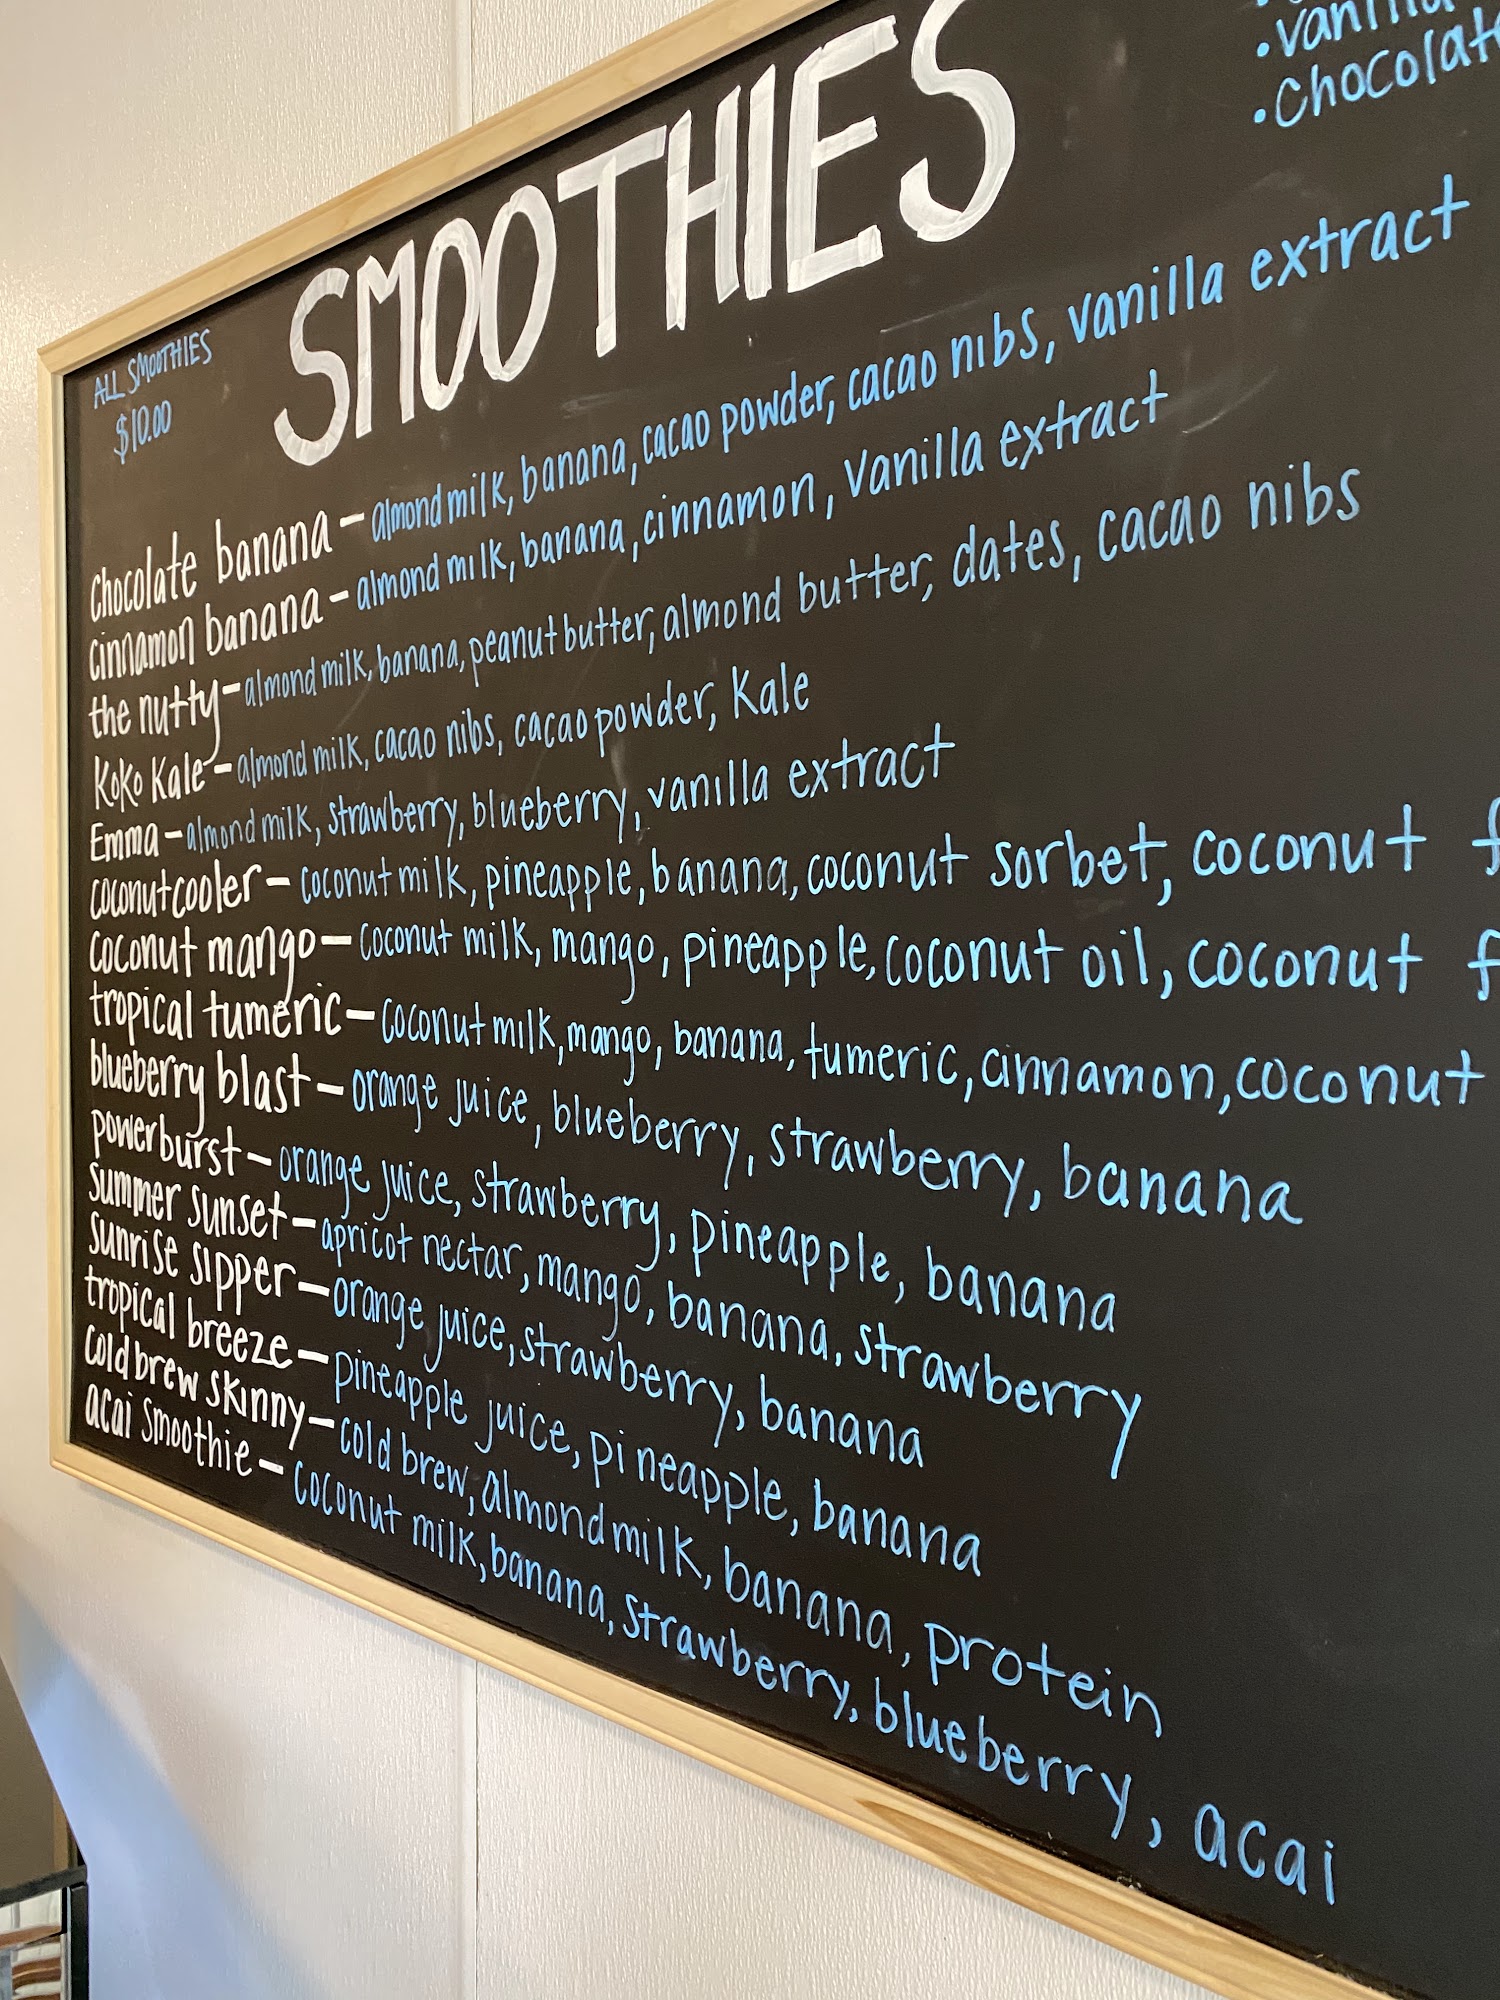 SMOOTHIES
ALL SMOOTHIES
$10.00
• Chocolat
chocolate banana - almond milk, banana, cacao powder, cacao nibs, vanilla extract
cinnamon banana - almond milk, banana, cinnamon, vanilla extract
the nutty - almond milk, banana, peanut butter, almond butter, dates, cacao nibs
Koko Kale - almond milk, cacao nibs, cacao powder, Kale
Emma - almond milk, strawberry, blueberry, vanilla extract
coconut cooler - coconut milk, pineapple, banana, coconut sorbet, coconut f
coconut mango - coconut milk, mango, pineapple, coconut oil, coconut f
tropical tumeric - coconut milk, mango, banana, tumeric, cinnamon, coconut
blueberry blast - orange juice, blueberry, strawberry, banana
powerburst - orange juice, strawberry, pineapple, banana
summer sunset - apricot nectar, mango, banana, strawberry
sunrise sipper - orange juice, strawberry, banana
tropical breeze - pineapple juice, pineapple, banana
cold brew skinny - cold brew, almond milk, banana, protein
acai smoothie - coconut milk, banana, strawberry, blueberry, acai